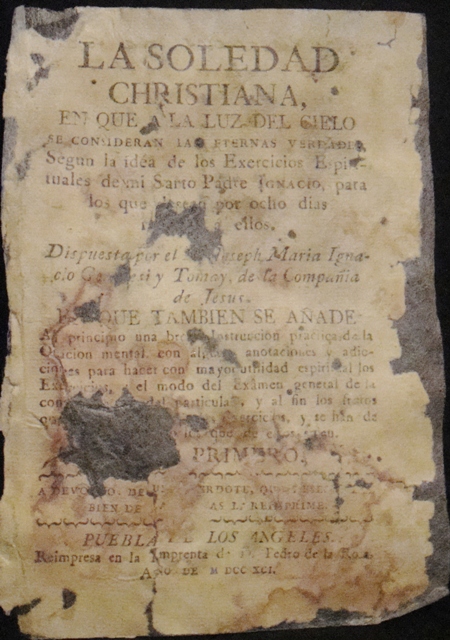 LA SOLEDAD
CHRISTIANA,
EN QUE A LA LUZ DEL CIELO
SE CONSIDERAN LAS ETERNAS VERDADES
Segun la idéa de los Exercicios Espiri-
tuales de mi Santo Padre IGNACIO, para
los que desean por ocho dias
ellos.
Dispuesta por el Joseph Maria Igna-
cio y Tomay, de la Compañia
de Jesus.
EN QUE TAMBIEN SE AÑADE
Al principio una breve Instruccion practica de la
Oracion mental, con algunas anotaciones y adic-
ciones para hacer con mayor utilidad espiritual los
Exercicios, el modo del Examen general de la
con del particular, y al fin los frutos
Exercicios, y se han de
que de
PRIMERO,
A DEVOCIO. DE
BIEN DE AS LO REIMPRIME.
PUEBLA DE LOS ANGELES.
Reimpresa en la Imprenta de D. Pedro de la Rosa
AÑO DE M DCC XCI.